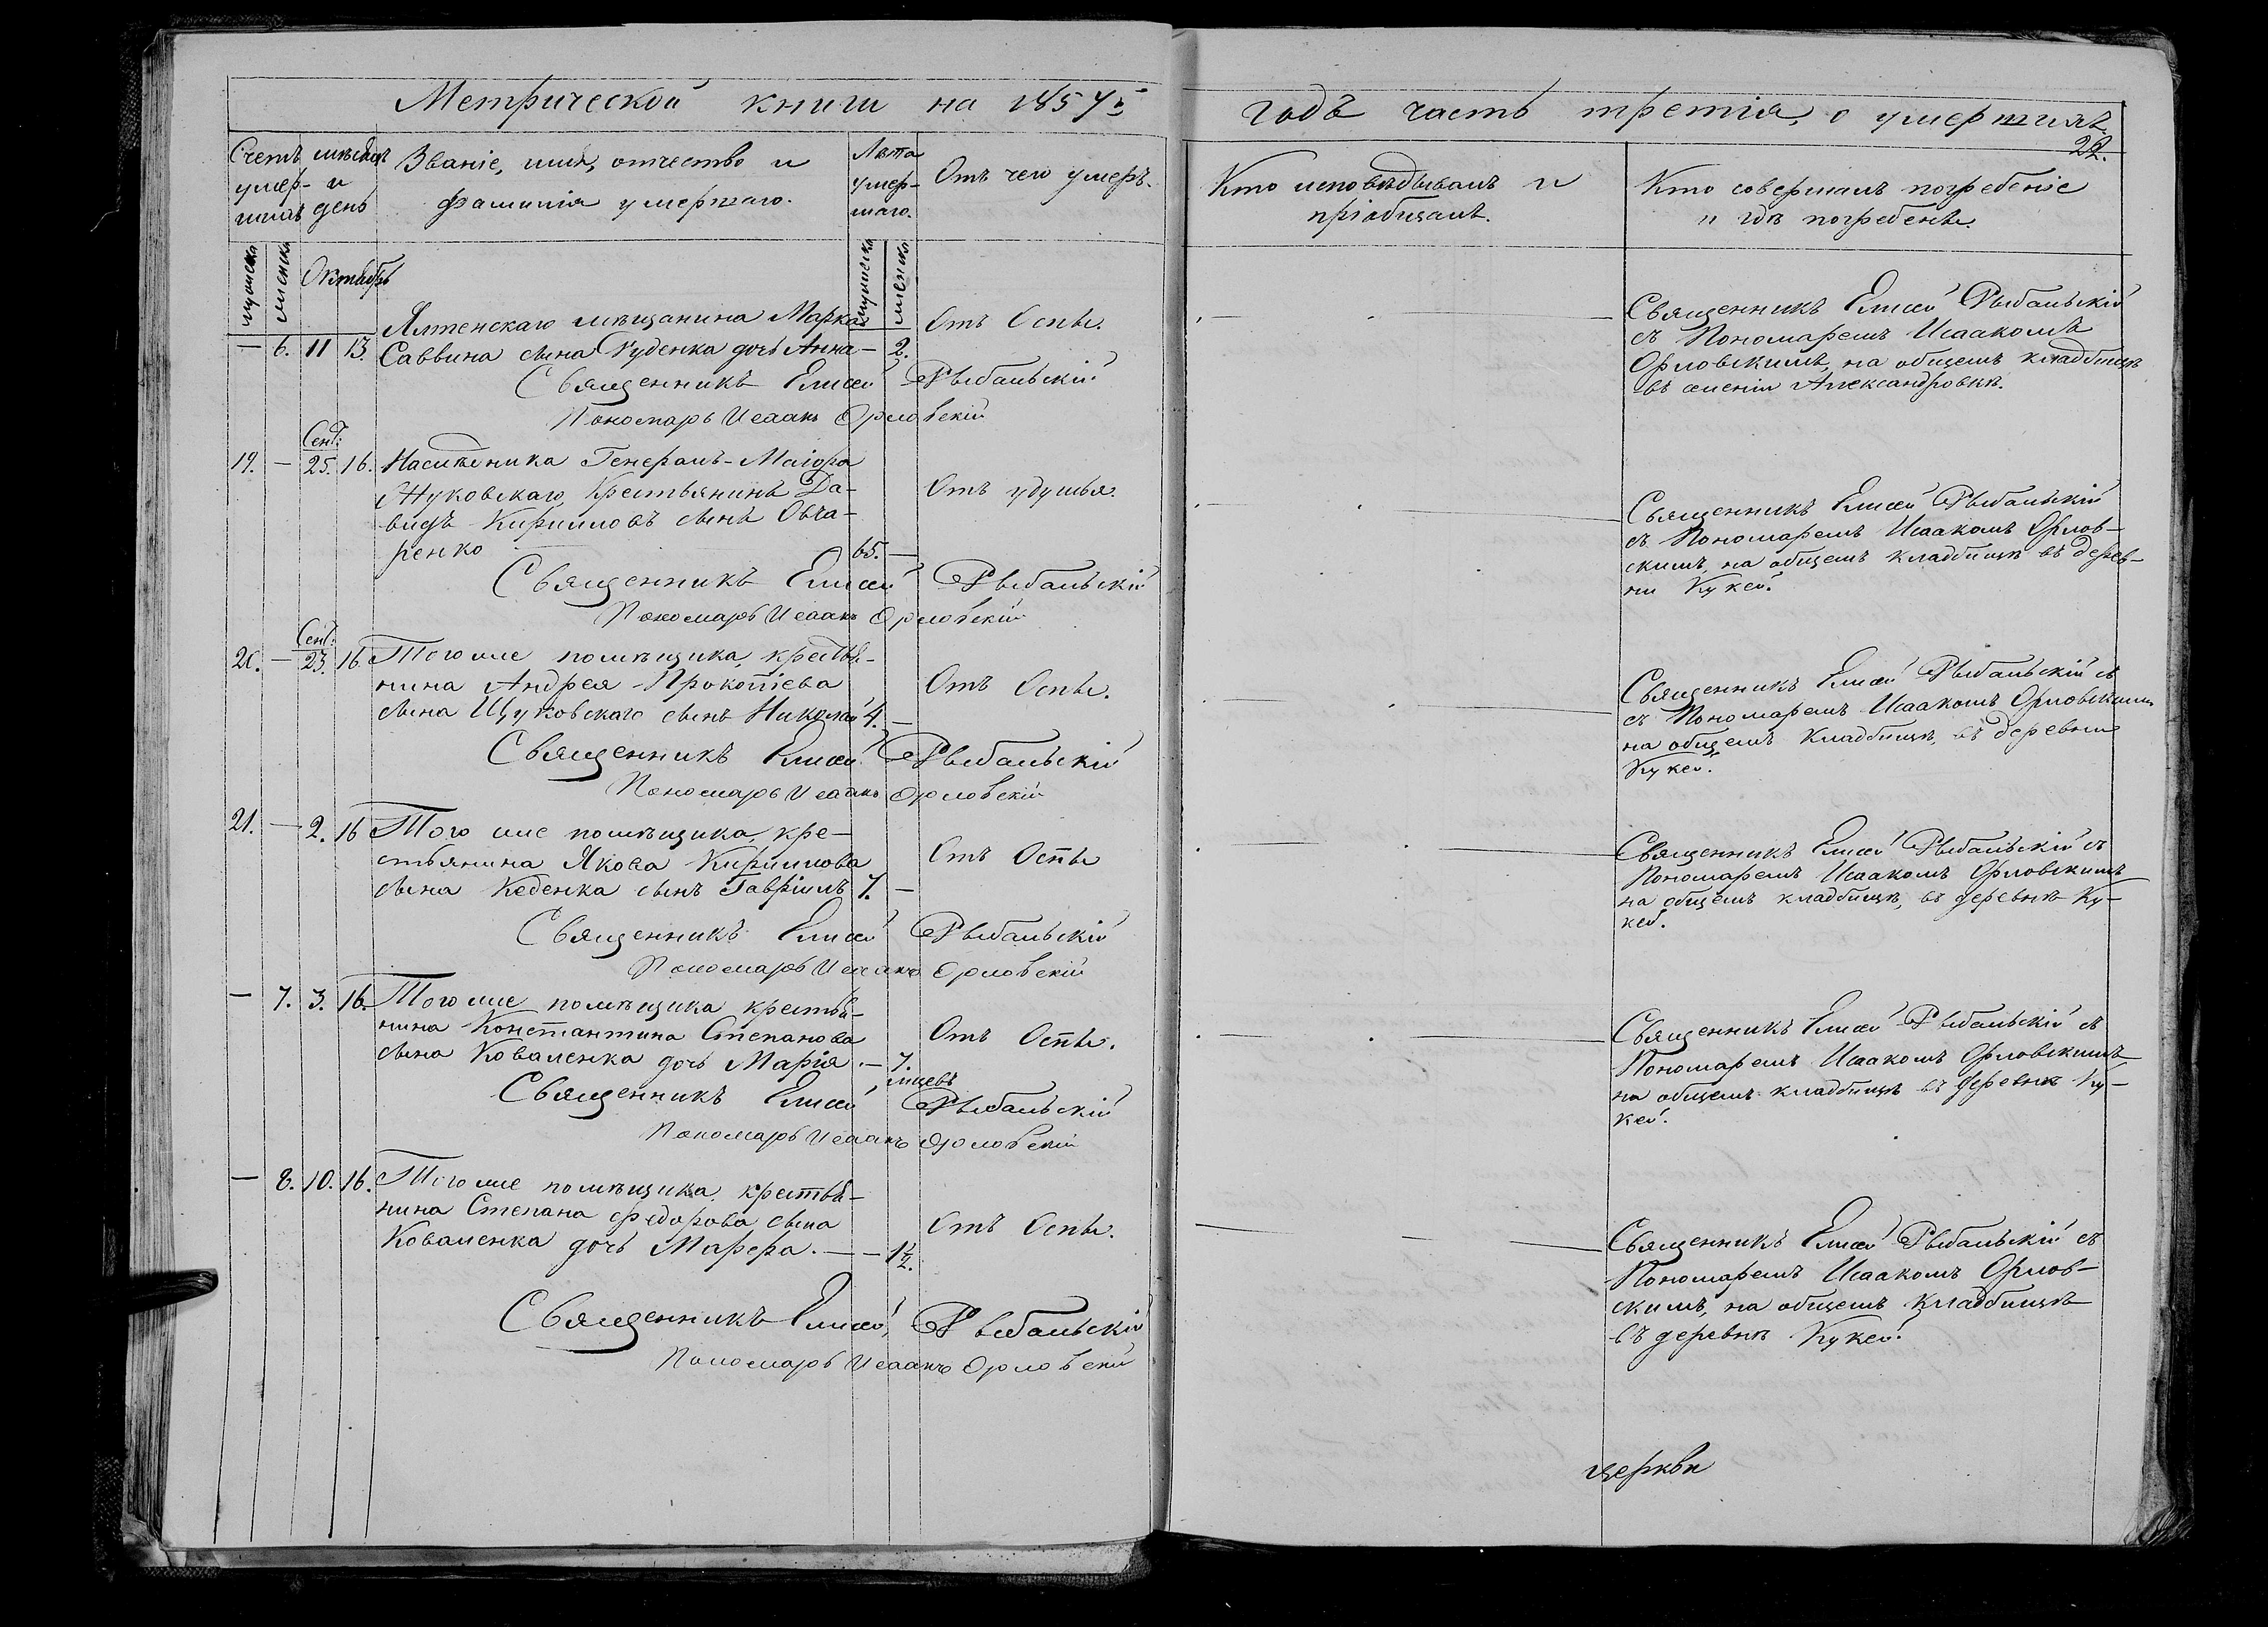 Метрической книги на 1857й
Счетъ умер-шихъ
мѣсяцъ и день
Званіе, имя, отчество и фамилія умершаго.
Лѣта умер-шаго.
Отъ чего умеръ.
мужеска
женска
Октябрь
мужеска
женска
Ялтенскаго мѣщанина Марка
Отъ Оспы.
— 6. 11 13. Саввина сына Руденка дочь Анна — 2.
Священникъ Елисей Рыбальскій
Пономарь Исаакъ Орловскій
Сент:
19. — 25. 16. Наслѣдника Генералъ-Маіора
Жуковскаго, Крестьянинъ Да-
Отъ удушья.
видъ Кирилловъ сынъ Овча-
ренко 65. —
Священникъ Елисей Рыбальскій
Пономарь Исаакъ Орловскій
Сент:
20. — 23. 16. Тогоже помѣщика, крестья-
нина Андрея Прокопіева
Отъ Оспы.
сына Щуковскаго сынъ Николай 4. —
Священникъ Елисей Рыбальскій
Пономарь Исаакъ Орловскій
21. — 2. 16 Того же помѣщика, кре-
стьянина Якова Кириллова
Отъ Оспы
сына Кебенка сынъ Гавріилъ 7. —
Священникъ Елисей Рыбальскій
Пономарь Исаакъ Орловскій
— 7. 3. 16. Тогоже помѣщика крестья-
нина Константина Степанова
Отъ Оспы.
сына Коваленка дочь Марія. — 7.
мцевъ
Священникъ Елисей Рыбальскій
Пономарь Исаакъ Орловскій
— 8. 10. 16. Тогоже помѣщика, крестья-
нина Степана Федорова сына
Отъ Оспы.
Коваленка дочь Марфа. — — 1½.
Священникъ Елисей Рыбальскій
Пономарь Исаакъ Орловскій
годъ часть третія, о умершихъ
22.
Кто исповѣдывалъ и
пріобщалъ.
Кто совершалъ погребеніе
и гдѣ погребены.
Священникъ Елисей Рыбальскій
съ Пономаремъ Исаакомъ
Орловскимъ, на общемъ кладбищѣ
въ имѣніи Александровкѣ.
Священникъ Елисей Рыбальскій
съ Пономаремъ Исаакомъ Орлов-
скимъ, на общемъ кладбищѣ въ дерев-
ни Кукей.
Священникъ Елисей Рыбальскій съ
съ Пономаремъ Исаакомъ Орловскимъ
на общемъ кладбищѣ, въ деревни
Кукей.
Священникъ Елисей Рыбальскій съ
Пономаремъ Исаакомъ Орловскимъ
на общемъ кладбищѣ, въ деревнѣ Ку-
кей.
Священникъ Елисей Рыбальскій съ
Пономаремъ Исаакомъ Орловскимъ
на общемъ кладбищѣ въ деревнѣ Ку-
кей.
Священникъ Елисей Рыбальскій съ
Пономаремъ Исаакомъ Орлов-
скимъ, на общемъ кладбищѣ
въ деревнѣ Кукей.
церкви